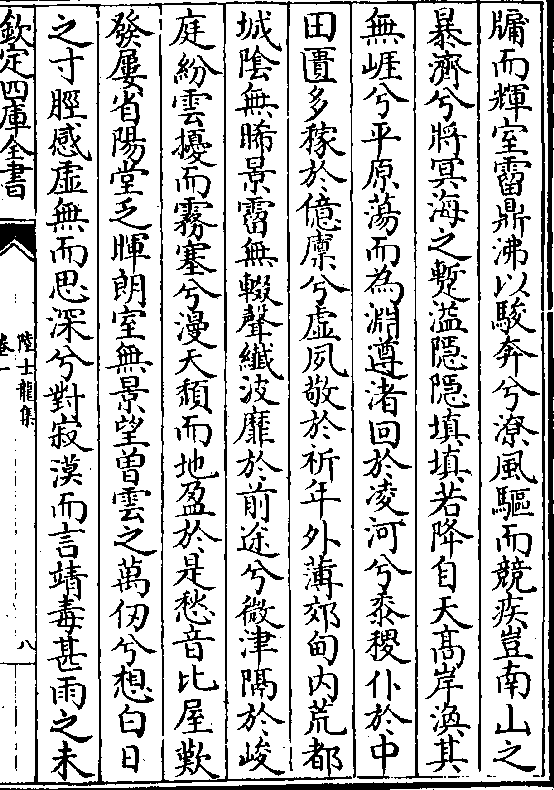 牖而輝室靁鼎沸以駿奔兮潦風驅而競疾豈南山之
暴濟兮將冥海之蹔溢隱隱填填若降自天髙岸渙其
無崖兮平原蕩而為淵遵渚回於凌河兮黍稷仆於中
田匱多稼於億廩兮虚夙敬於祈年外薄郊甸内荒都
城陰無晞景靁無輟聲纎波靡於前途兮微津隔於峻
庭紛雲擾而霧塞兮漫天頽而地盈於是愁音比屋歎
發屢省陽堂乏暉朗室無景望曾雲之萬仞兮想白日
之寸脛感虛無而思深兮對寂漠而言靖毒甚雨之未
欽定四庫全書
陸士龍集
卷一
八